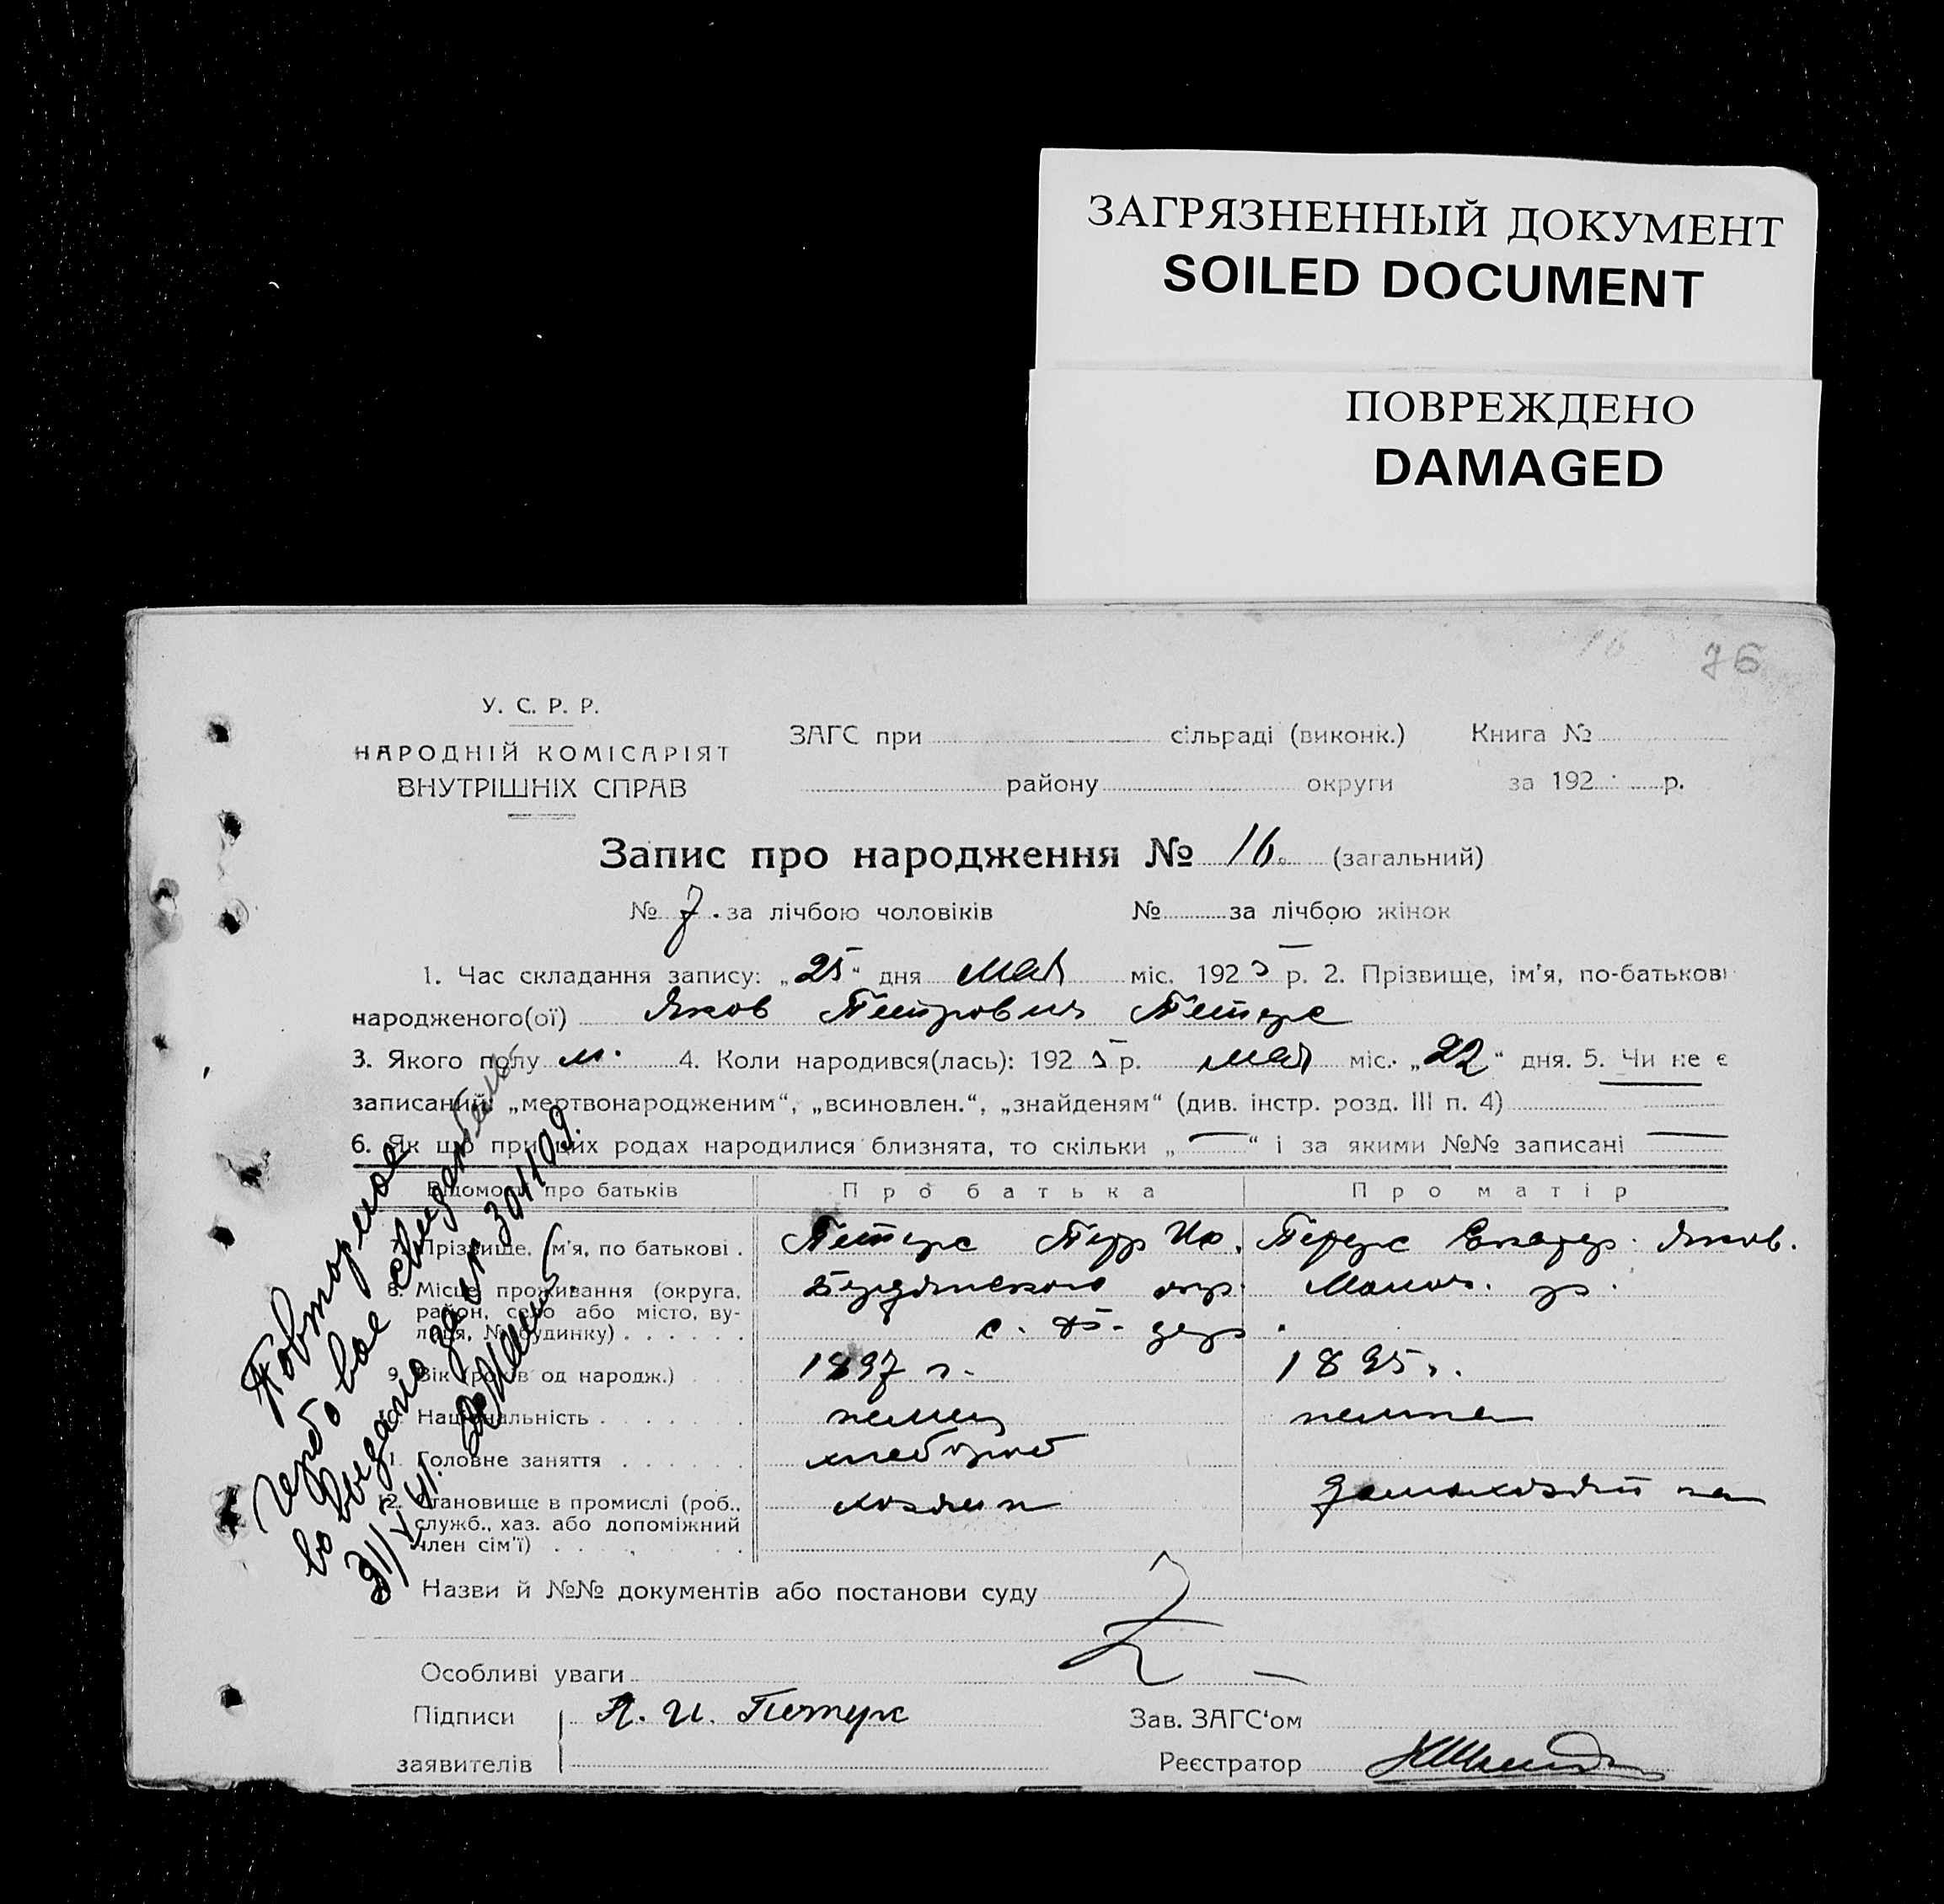 ЗАГРЯЗНЕННЫЙ ДОКУМЕНТ
SOILED DOCUMENT
ПОВРЕЖДЕНО
DAMAGED
16 76
У. С. Р. Р.
НАРОДНІЙ КОМІСАРІЯТ
ВНУТРІШНІХ СПРАВ
ЗАГС при сільраді (виконк.) Книга №
району округи за 192 р.
Запис про народження № 16. (загальний)
№ 7. за лічбою чоловіків № за лічбою жінок
1. Час складання запису: „25“ дня мая міс. 1925 р. 2. Прізвище, ім'я, по-батькові
народженого(ої) Яков Петрович Петерс
3. Якого полу м. 4. Коли народився(лась): 1925 р. мая міс. „22“ дня. 5. Чи не є
записаний: „мертвонародженим“, „всиновлен.“, „знайденям“ (див. інстр. розд. III п. 4)
6. Як що при цих родах народилися близнята, то скільки „—“ і за якими №№ записані —
Відомости про батьків Про батька Про матір
7. Прізвище, ім'я, по батькові . Петерс Петр Ив. Петерс Екатер. Яков.
8. Місце проживання (округа, Бердянского окр. Молоч. р.
район, село або місто, ву-
лиця, № будинку)
9. Вік (років од народж.) 1897 г. 1895 г.
10. Національність немец немка
11. Головне заняття хлебороб
12. Становище в промислі (роб., хозяин домохозяйка
служб., хаз. або допоміжний
член сім'ї)
Назви й №№ документів або постанови суду
Особливі уваги —
Підписи П. И. Петерс Зав. ЗАГС'ом
заявителів Реєстратор
Повторное
гербовое свидетель-
во выдано за №
31/V 41.